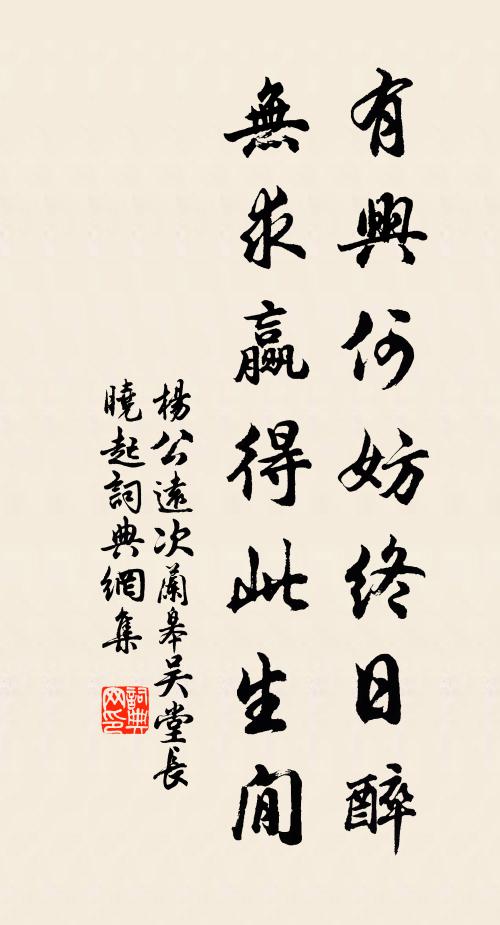 有興何妨終日醉
無求贏得此生閒
楊公遠次蘭皋吴堂長
曉起詞典網集
詞典
网印